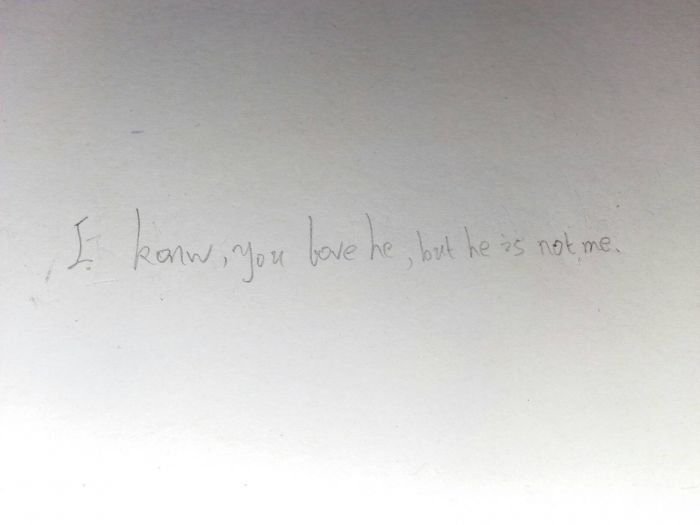 I konw, you love he, but he is not me.